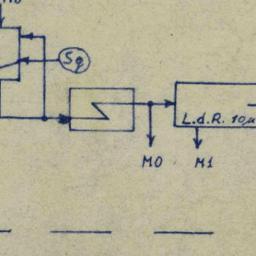 Sq
L.d.R. 10μ
M0 M1